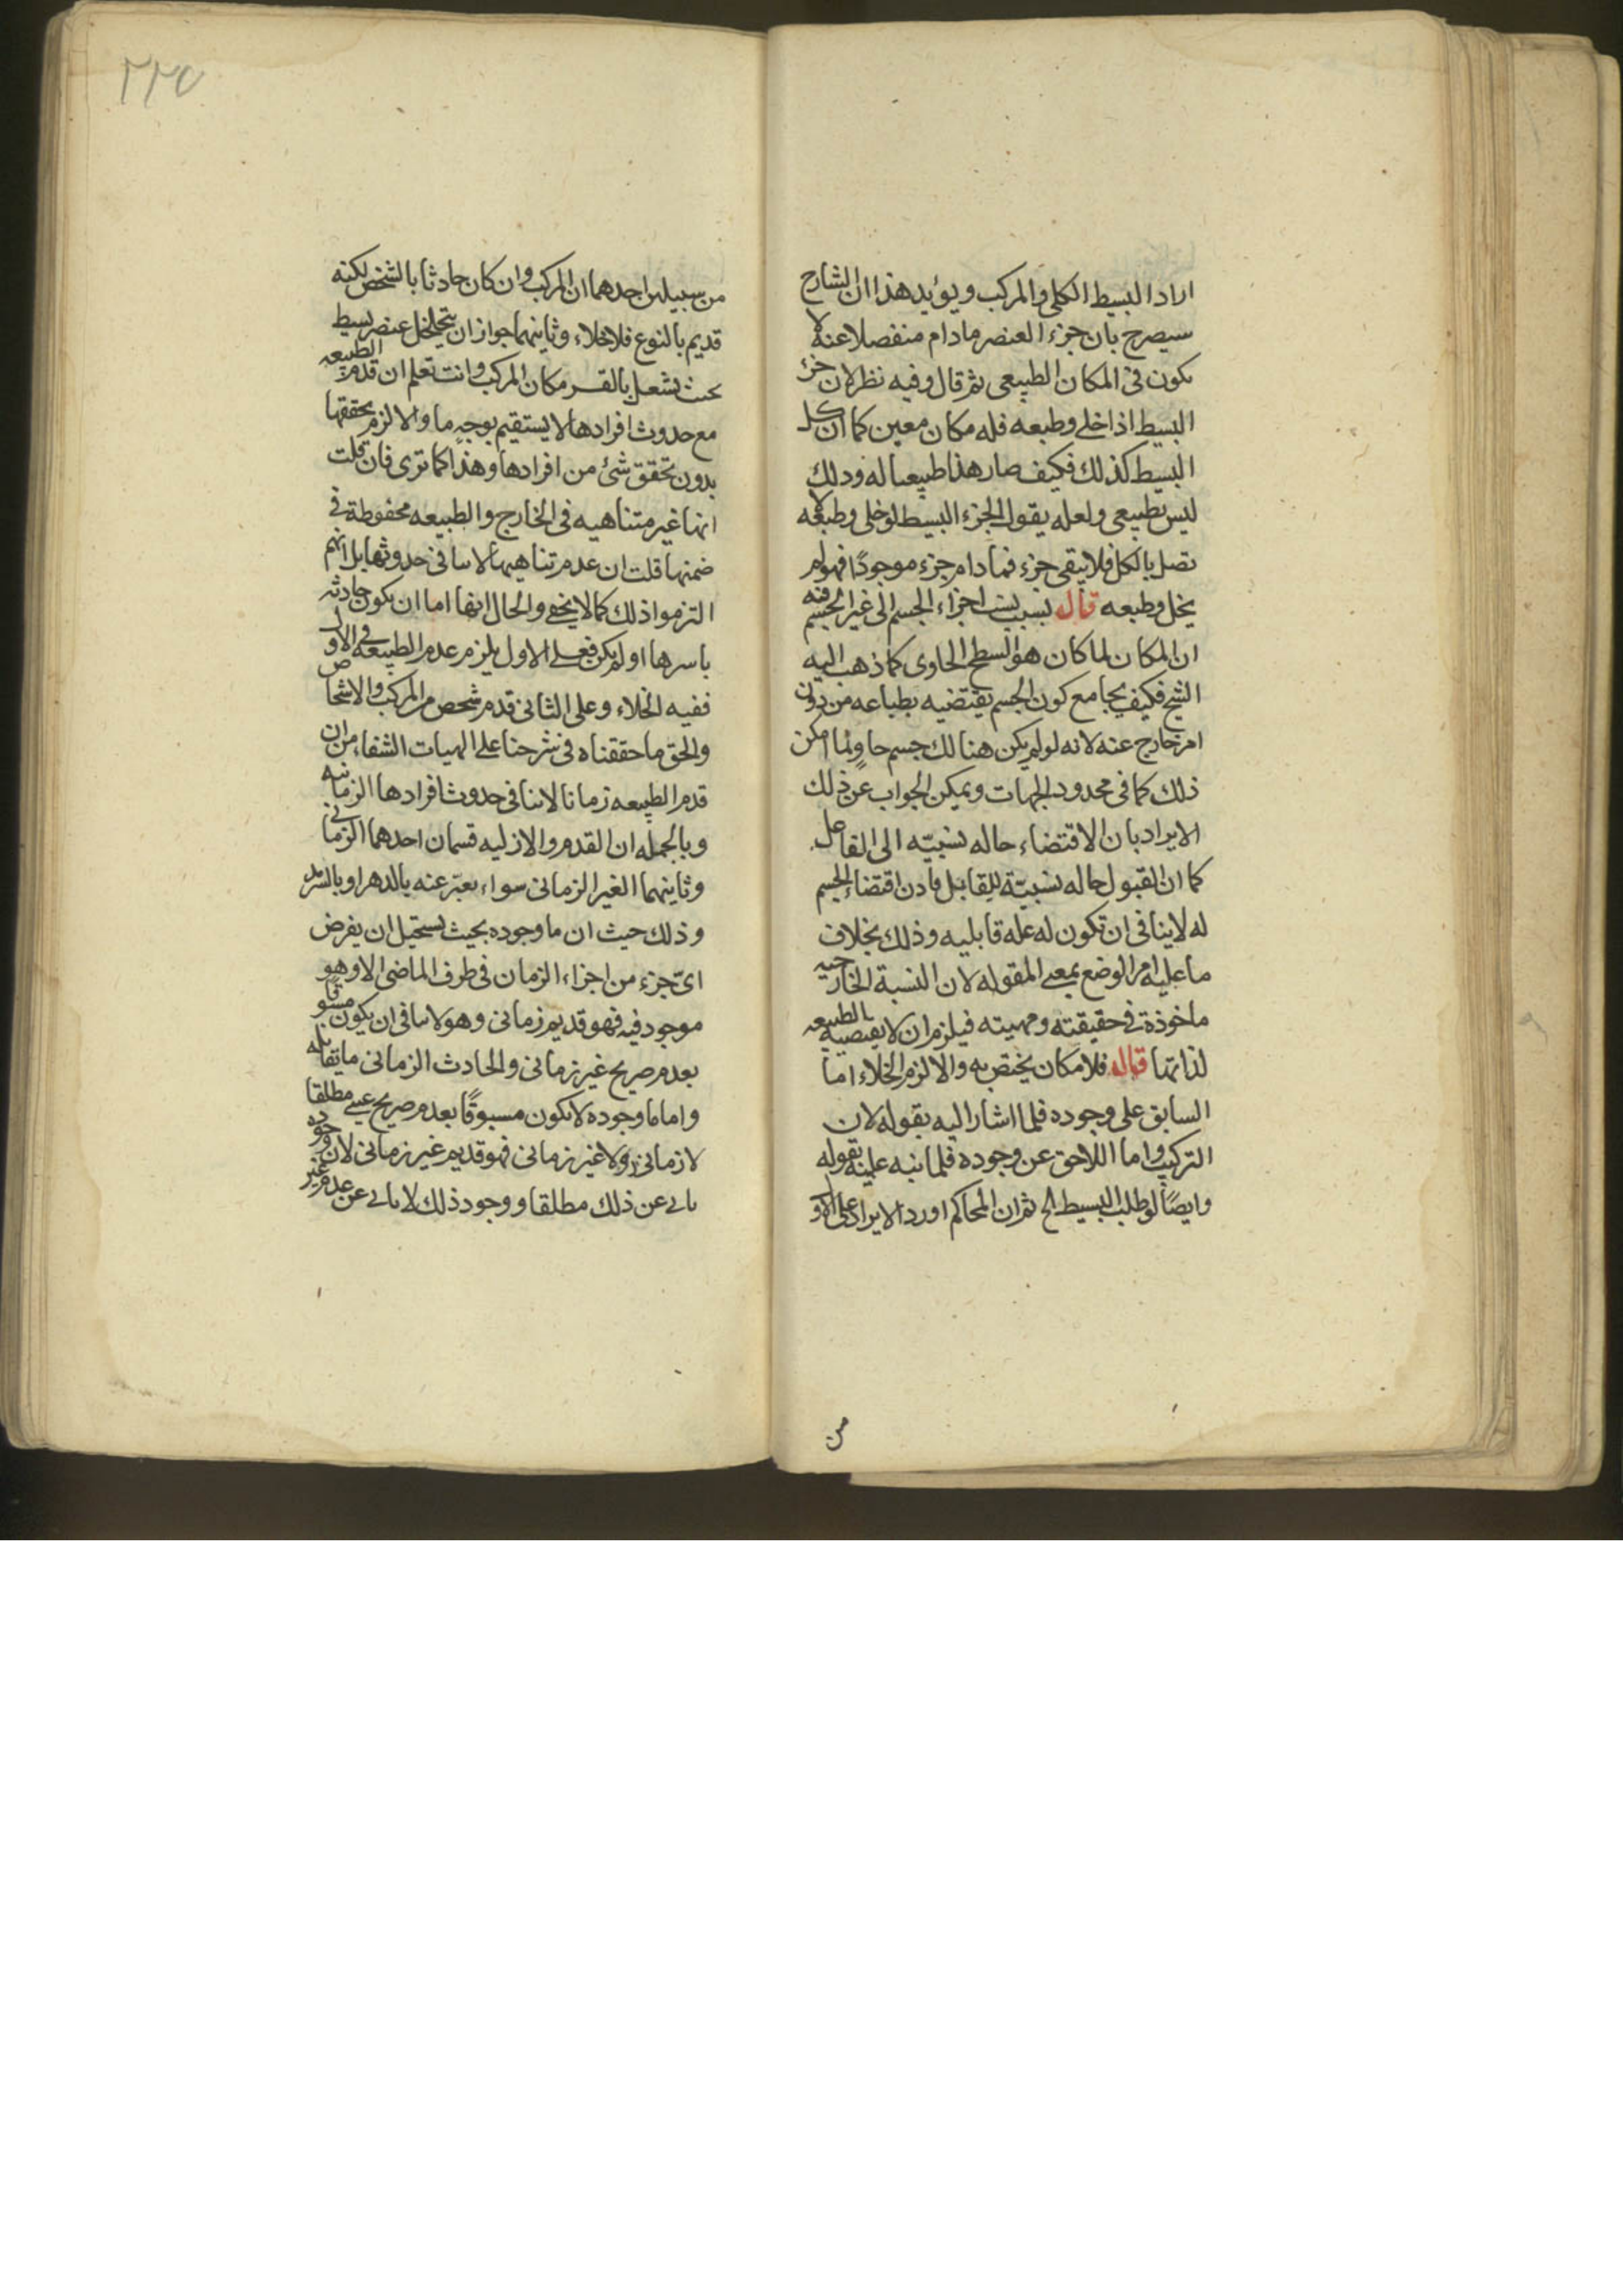 اراد البسيط الكلى والمركب ويؤيد هذا ان الشارح
سيصرح بان جزء العنصر مادام منفصلا عنه لا
يكون فى المكان الطبيعى ثم قال وفيه نظر لان جزء
البسيط اذا خلى وطبعه فله مكان معين كما ان كل
البسيط كذلك فكيف صار هذا طبيعيا له وذلك
ليس بطبيعى ولعله يقول الجزء البسيط لو خلى وطبعه لا
تصل بالكل فلا يبقى جزء فمادام جزء موجودًا فهو لم
يخل وطبعه قال بسبب نسب اجزاء الجسم الى غير الجسم فيه
ان المكان لما كان هو السطح الحاوى كما ذهب اليه
الشيخ فكيف يجامع كون الجسم يقتضيه بطباعه من دون
امر خارج عنه لانه لو لم يكن هنالك جسم حاوٍ لما امكن
ذلك كما فى محدود الجهات ويمكن الجواب عن ذلك
الايراد بان الاقتضاء حاله نسبيّه الى الفاعل
كما ان القبول حاله نسبيّة للقابل فاذن اقتضاء الجسم
له لاينافى ان تكون له علة قابليه وذلك بخلاف
ما عليه امر الوضع بمعنى المقوله لان النسبة الخارجيه
ماخوذة فى حقيقته ومهيته فيلزم ان لا يقتضيه الطبيعه
لذاتها قال فلا مكان يختص به والا لزم الخلاء اما
السابق على وجوده فلما اشار اليه بقوله لان
التركيب واما اللاحق عن وجوده فلما نبه عليه بقوله
وايضًا لو طلب البسيط الخ ثم ان المحاكم اورد الايراد على الاول
من
٢٢٥
من سبيلين احدهما ان المركب وان كان حادثا بالشخص لكنه
قديم بالنوع فلا خلاء وثانيهما جواز ان يتخلخل عنصر بسيط
بحيث يشغل بالقسر مكان المركب وانت تعلم ان قدم الطبيعه
مع حدوث افرادها لا يستقيم بوجهٍ ما والا لزم تحققها
بدون تحقق شئ من افرادها وهذا كما ترى فان قلت
انها غير متناهيه فى الخارج والطبيعه محفوظة فى
ضمنها قلت ان عدم تناهيها لا ينافى حدوثها بل انهم
التزموا ذلك كما لا يخفى والحال انها اما ان يكون حادثه
باسرها او لم يكن فعلى الاول يلزم عدم الطبيعه فى الاول
ففيه الخلاء وعلى الثانى قدم شخص من المركب والاشخاص
والحق ما حققناه فى شرحنا على الهيات الشفاء من ان
قدم الطبيعه زمانا لا ينافى حدوث افرادها الزمانيه
وبالجمله ان القدم والازليه قسمان احدهما الزمانى
وثانيهما الغير الزمانى سواء يعبّر عنه بالدهر او بالسرمد
وذلك حيث ان ما وجوده بحيث يستحيل ان يفرض
اىّ جزء من اجزاء الزمان فى طرف الماضى الا وهو
موجود فيه فهو قديم زمانى وهو لا ينافى ان يكون مسبوقًا
بعدم صريح غير زمانى والحادث الزمانى ما يقابله
واما ما وجوده لا يكون مسبوقًا بعدم صريح مطلقا
لا زمانى ولا غير زمانى فهو قديم غير زمانى لان وجوده
يابى عن ذلك مطلقا ووجود ذلك لا يابى عن عدم غير